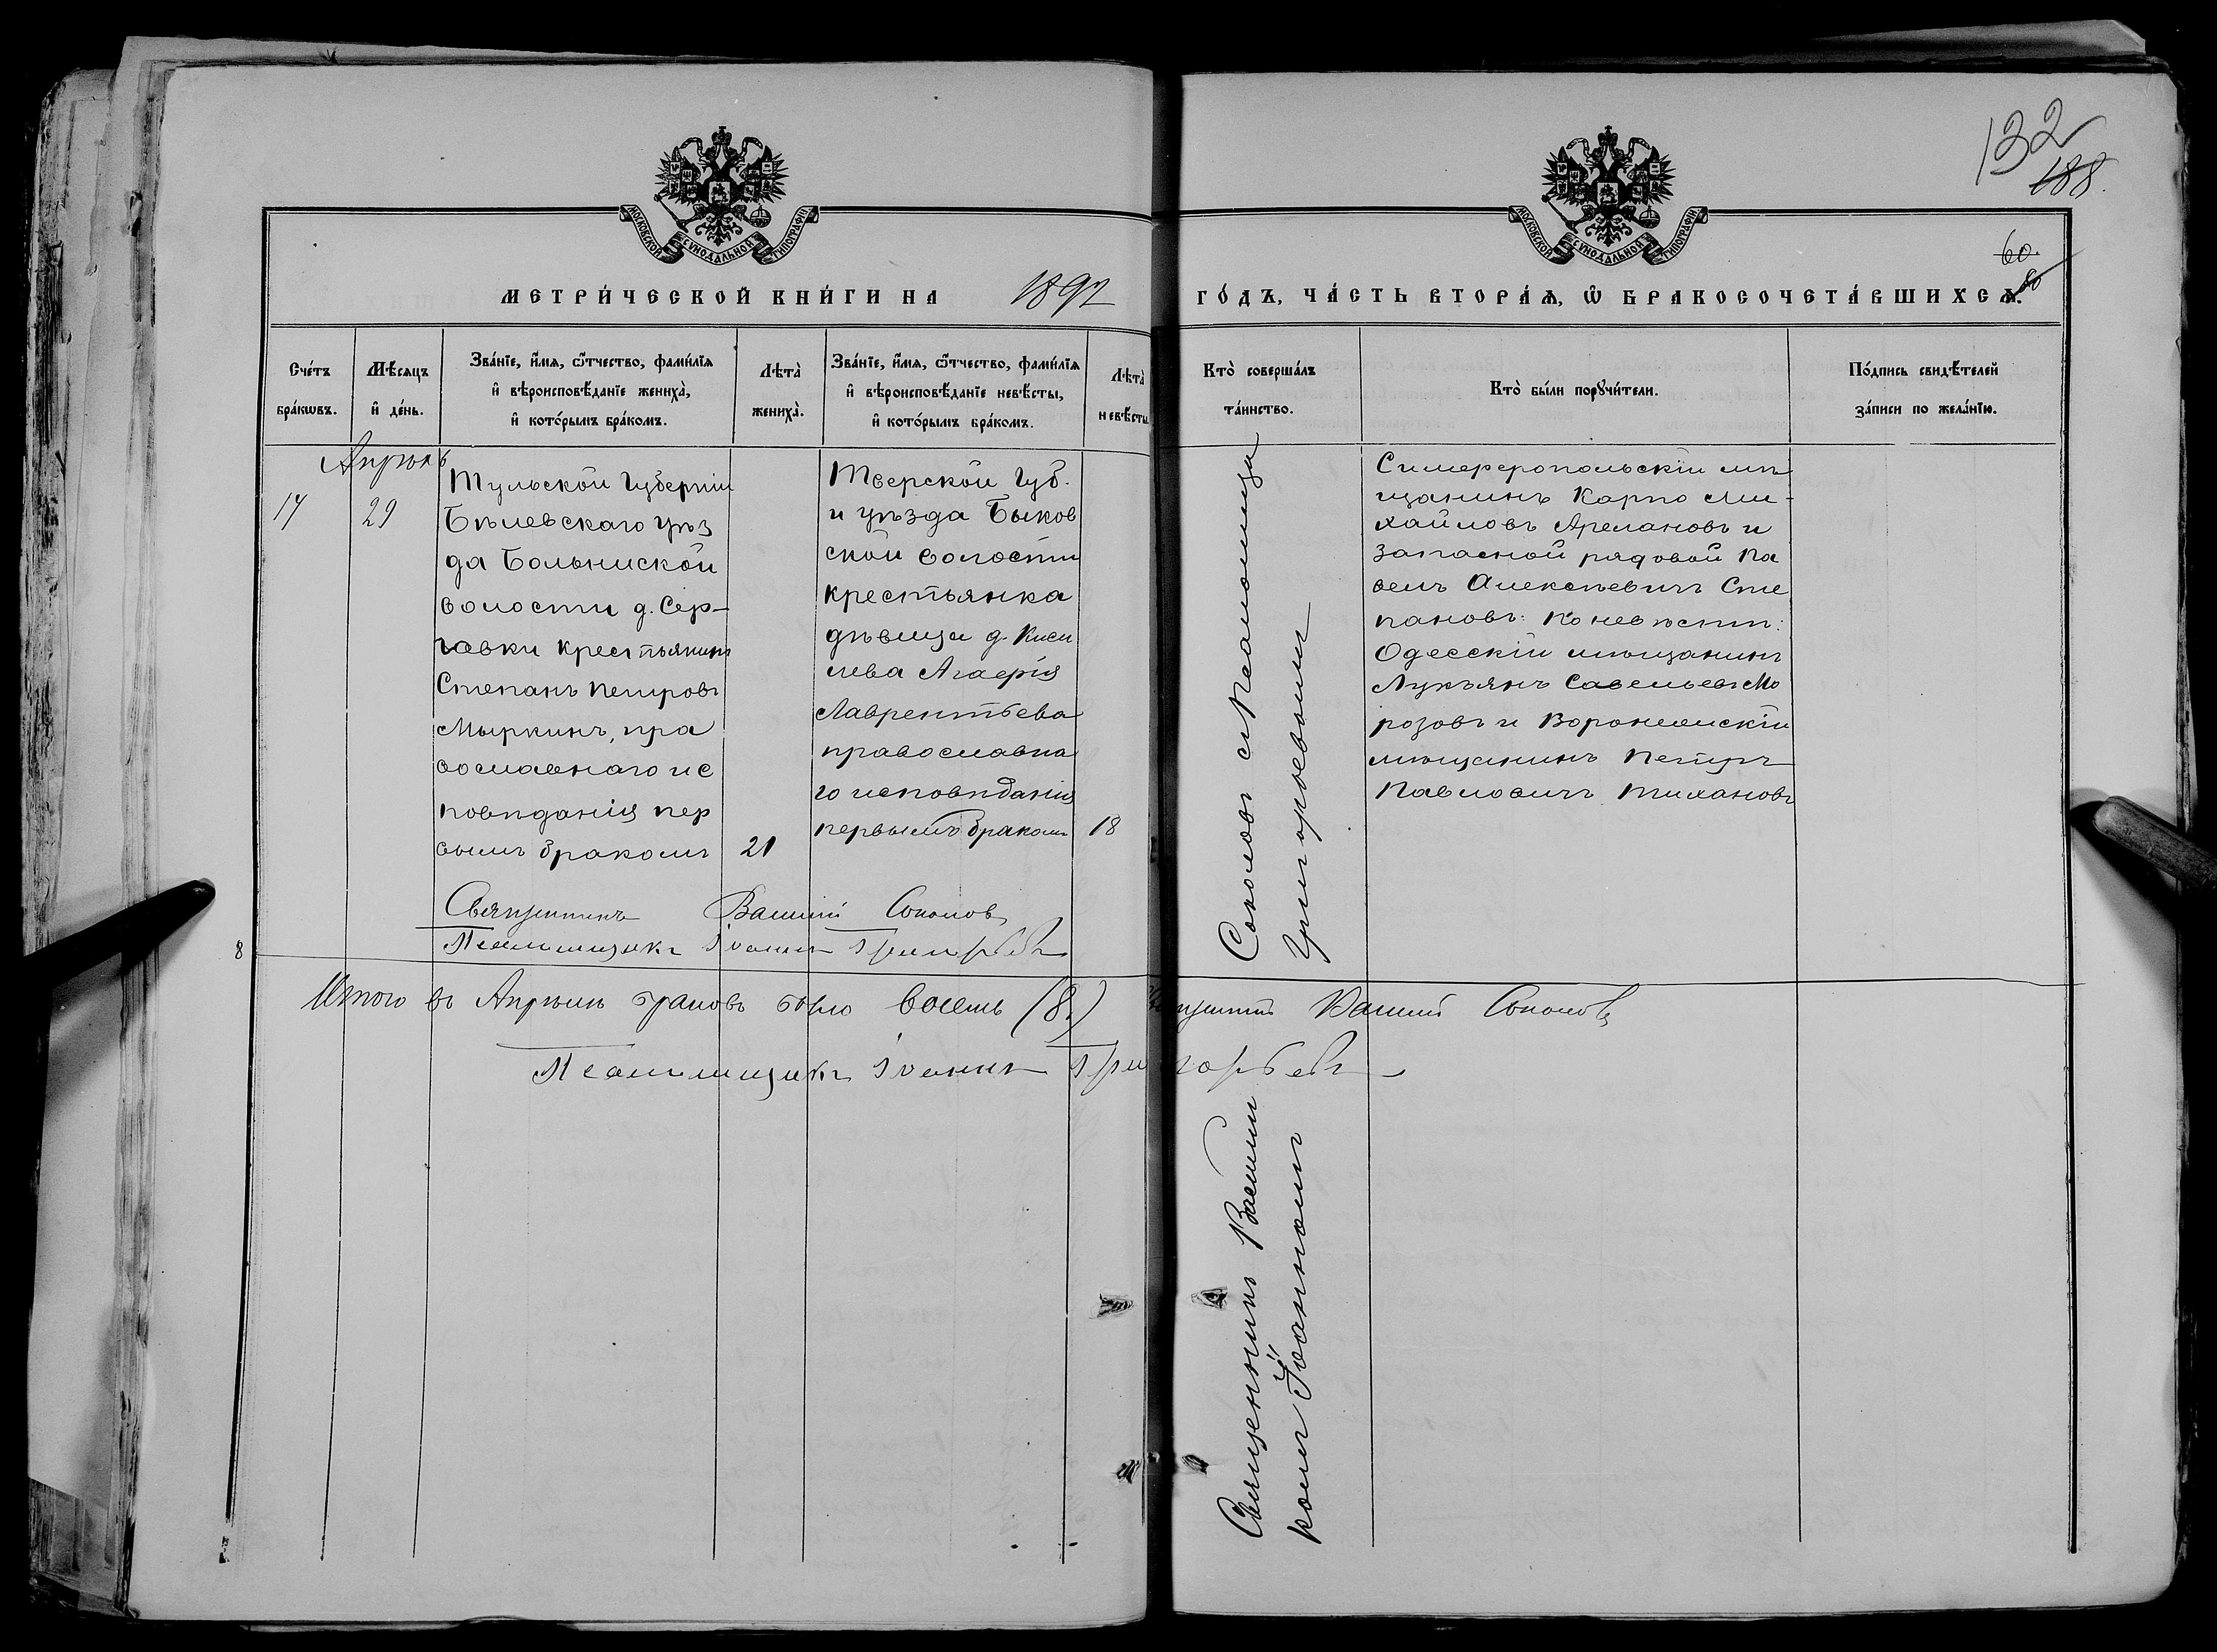 132
188.
60.
МОСКОВСКОЙ СУНОДАЛЬНОЙ ТИПОГРАФІИ
МОСКОВСКОЙ СУНОДАЛЬНОЙ ТИПОГРАФІИ
МЕТРИ́ЧЕСКОЙ КНИ́ГИ НА 1892 ГО́ДЪ, ЧА́СТЬ ВТОРА́Ѧ, Ѡ҆ БРАКОСОЧЕТА́ВШИХСѦ.
Сче́тъ
бра́кѡвъ.
Мѣ́сяцъ
и҆ де́нь.
Зва́нїе, и҆́мѧ, ѻ҆́тчество, фами́лїѧ
и҆ вѣроисповѣ́данїе жениха̀,
и҆ кото́рымъ бра́комъ.
Лѣта̀
жениха̀.
Зва́нїе, и҆́мѧ, ѻ҆́тчество, фами́лїѧ
и҆ вѣроисповѣ́данїе невѣ́сты,
и҆ кото́рымъ бра́комъ.
Лѣта̀
невѣ́сты
Кто̀ соверша́лъ
та́инство.
Кто̀ бы́ли порꙋчи́тели.
По́дпись свидѣ́телей
за́писи по жела́нїю.
Апрѣль
17
29
Тульской Губерніи
Бѣлевскаго уѣз
да Больниской
волости д. Сер-
гѣевки крестьянинъ
Степанъ Петровъ
Мыркинъ, пра
вославнаго ис
повѣданія пер
вымъ бракомъ
21
Тверской Губ.
и уѣзда Быков
ской волости
крестьянка
дѣвица д. Киси
лева Агаѳрія
Лаврентьева
православна
го исповѣданія
первымъ бракомъ
18
Священникъ Василій
Соколовъ съ Псаломщи
комъ Іоанномъ
Григорьевымъ
Симферопольскій мѣ
щанинъ Карпъ Ми-
хайловъ Арслановъ и
запасной рядовой Па
велъ Алексѣевичъ Сте
пановъ: По невѣстѣ:
Одесскій мѣщанинъ
Лукьянъ Савельевъ Мо
розовъ и Воронежскій
мѣщанинъ Петръ
Павловичъ Тихановъ
Священникъ Василій Соколовъ
Псаломщикъ Іоаннъ Григорьевъ
8
Итого въ Апрѣлѣ браковъ было восемь (8.) Священникъ Василій Соколовъ
Псаломщикъ Іоаннъ Григорьевъ